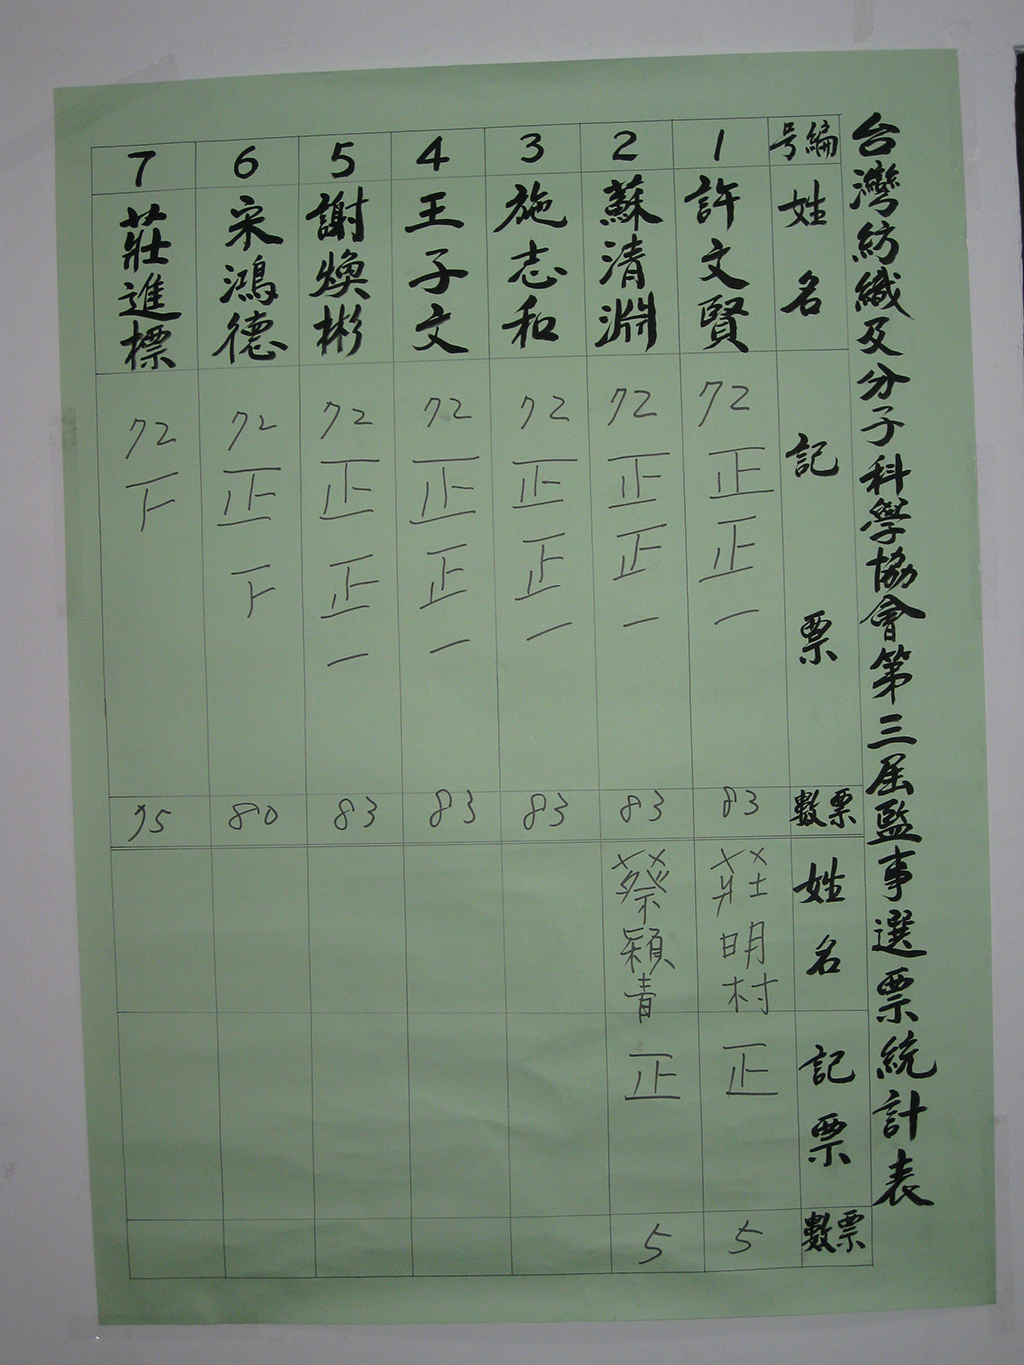 台灣紡織及分子科學協會第三屆監事選票統計表
編号
姓名
記票
票數
姓名
記票
票數
1
許文賢
72
正
正
一
83
莊明村
正
5
2
蘇清淵
72
正
正
一
83
蔡穎青
正
5
3
施志和
72
正
正
一
83
4
王子文
72
正
正
一
83
5
謝煥彬
72
正
正
一
83
6
宋鴻德
72
正
下
80
7
莊進標
72
下
75